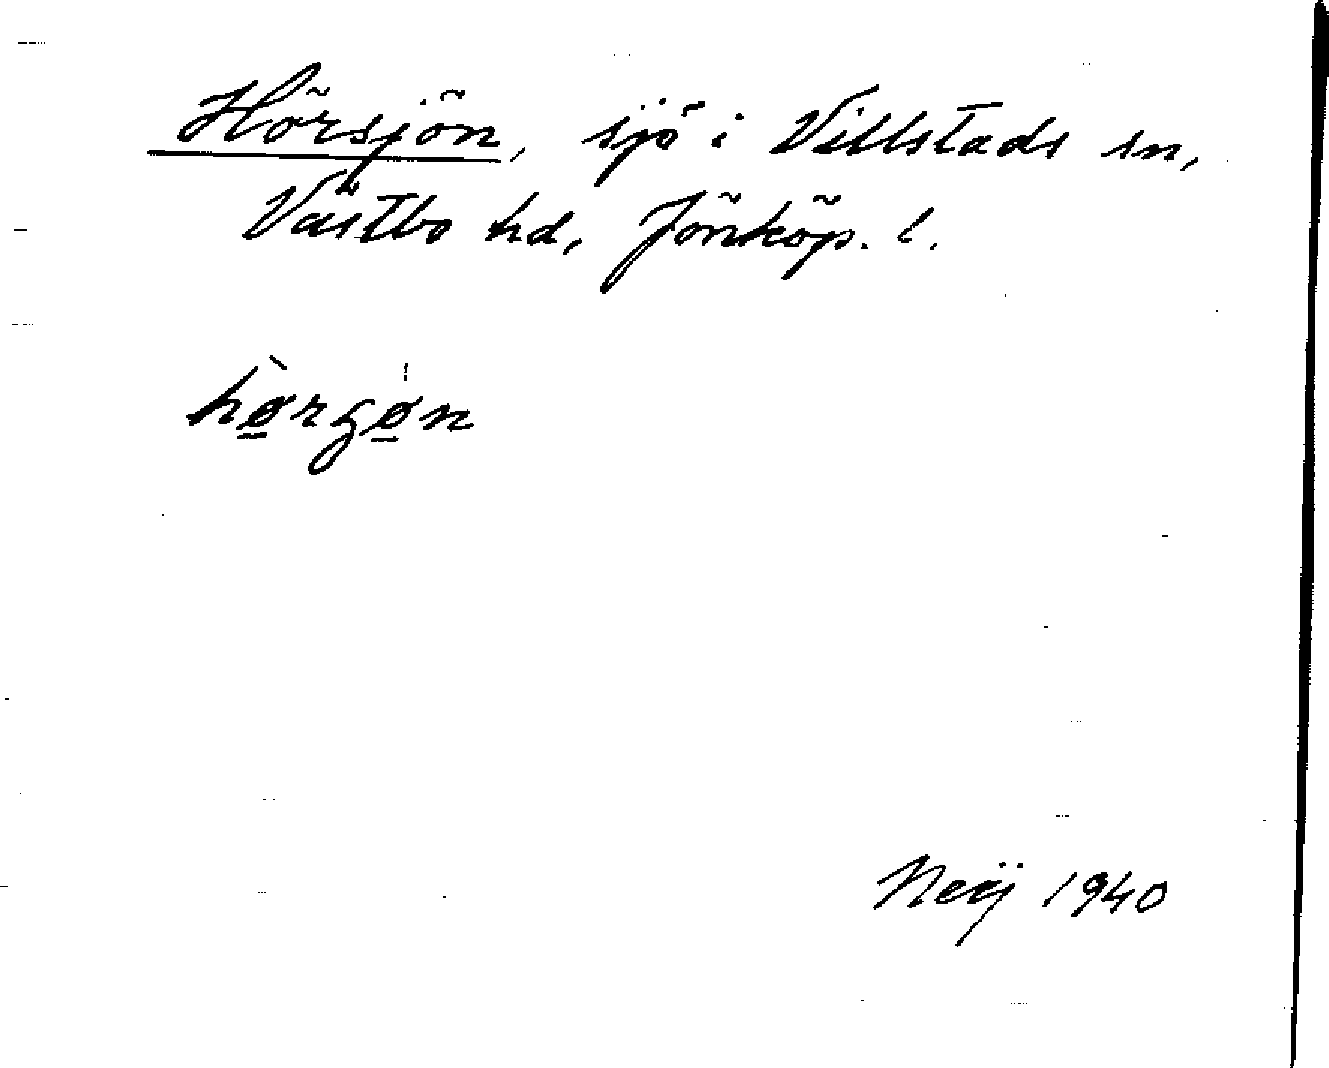 Hörsjön, sjö i Villstads sn,
Västbo hd, Jönköp. l.
hø̲rgø̲n
1940